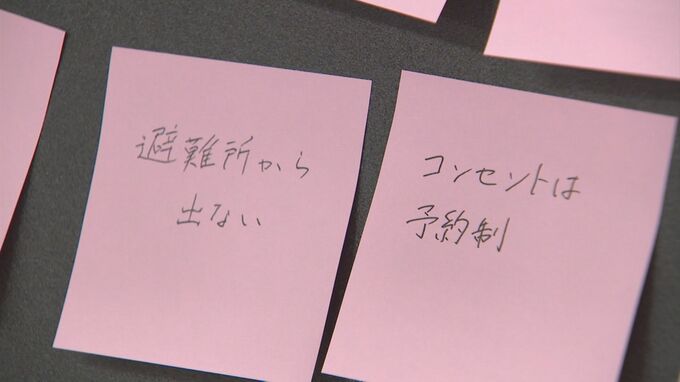 避難所から
出ない
コンセントは
予約制